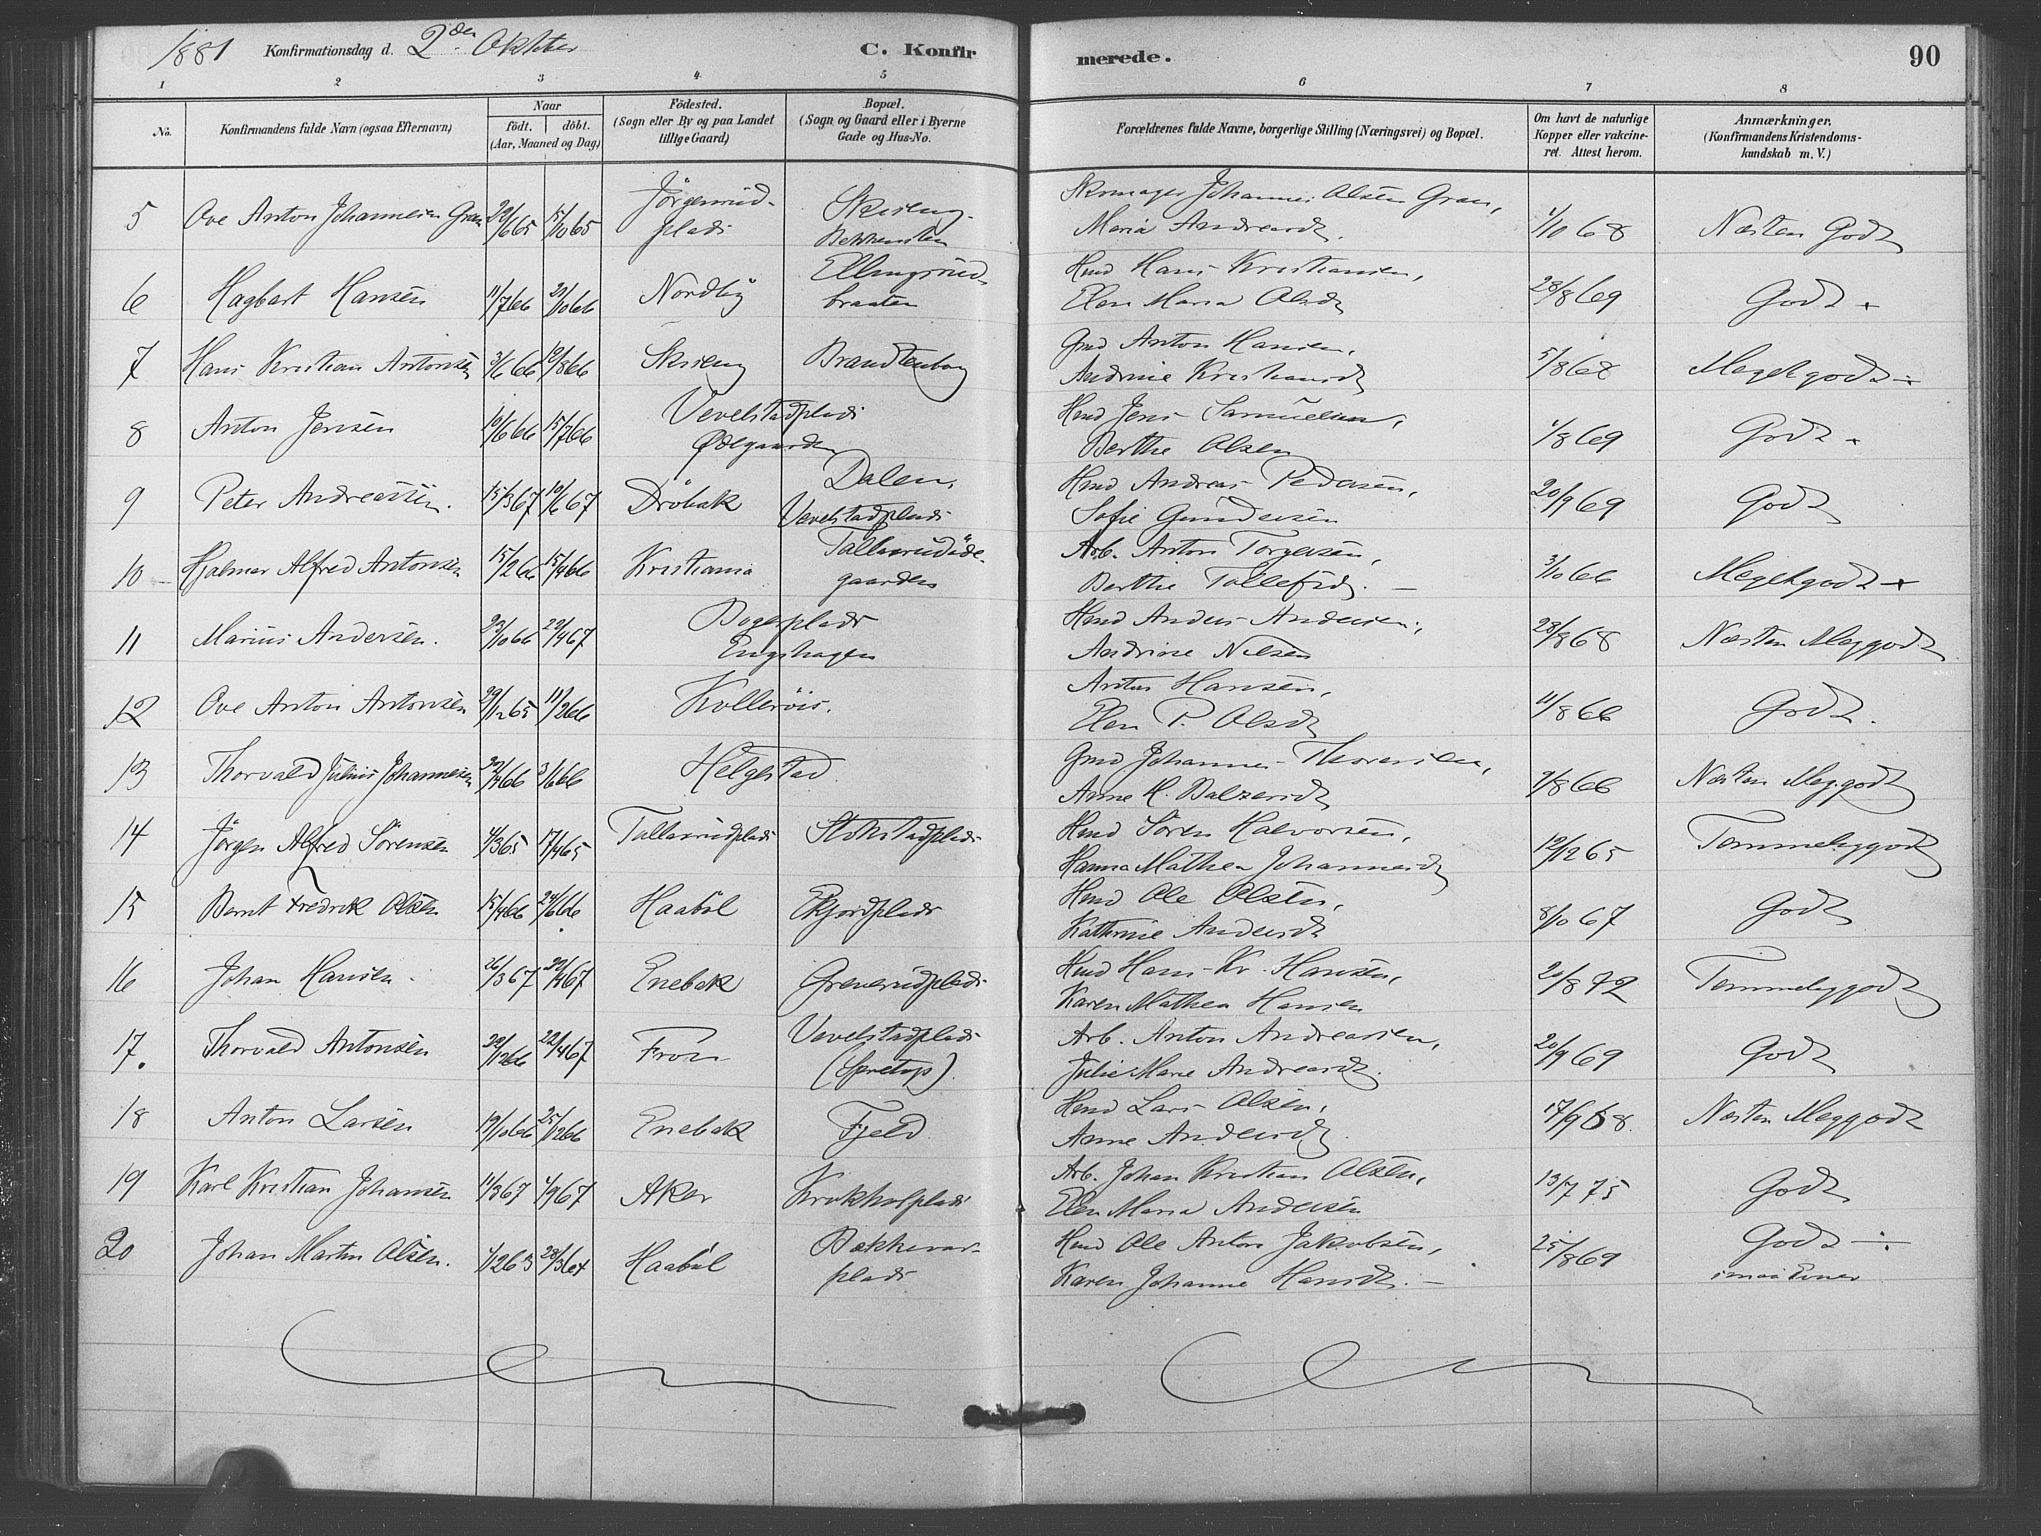 1881 Konfirmationsdag d. 2den Oktber C. Konfir merede. 90
1 2 3 4 5 6 7 8
No. Konfirmandens fulde Navn (ogsaa Efternavn) Naar födt. döbt. (Aar, Maaned og Dag) Födested. (Sogn eller By og paa Landet tillige Gaard) Bopæl. (Sogn og Gaard eller i Byerne Gade og Hus-No. Forældrenes fulde Navne, borgerlige Stilling (Næringsvei) og Bopæl. Om havt de naturlige Kopper eller vakcineret. Attest herom. Anmærkninger, (Konfirmandens Kristendomskundskab m. V.)
5 Ove Anton Johannesen Gran 29/6 65 15/10 65 Jörgenrud- Skieng- Skomager Johannes Olsen Gran, 1/10 68 Næsten Godt
plads Bekkensten Maria Andreasd.
6 Hagbart Hansen 11/7 66 21/10 66 Nordby Ellingsrud- Hmd Hans Kristiansen, 28/8 69 Godt
braaten Elen Maria Olsd
7 Hans Kristian Antonsen 3/6 66 12/8 66 Skieng Brandtenborg Gmd Anton Hansen, 5/8 68 Megetgodt
Andrine Kristiansd
8 Anton Jensen 10/6 66 15/7 66 Vevelstadplads Hmd Jens Samuelsen, 1/8 69 Godt
Ødegaarden Berthe Olsen
9 Peter Andreassen. 15/3 67 10/6 67 Dröbak Dalen, Hmd Andreas Pedersen, 20/9 69 Godt
Vevelstadplads Sofie Gundersen
10 Hjalmar Alfred Antonsen 15/2 66 15/4 66 Kristiania Tallerudöde- Arb. Anton Torgersen, 3/10 66 Megetgodt
gaarden Berthe Tollefsd.
11 Marius Andersen. 23/10 66 22/4 67 Bögerplads Hmd Anders Andersen, 28/8 68 Næsten Meggodt
Engshagen Andrine Nilsen
12 Ove Anton Antonsen 29/12 65 11/2 66 Kolleröis. Anton Hansen, 11/8 66 Godt.
Elen P. Olsd
13 Thorvald Julius Johannesen 30/4 66 3/6 66 Helgestad Gmd Johannes Thoresen, 9/8 66 Næsten Meg.godt
Anne H. Balzersd
14 Jörgen Alfred Sörensen 4/3 65 17/4 65 Tallerudplads Stokstadplads Hmd Sören Halvorsen, 12/12 65 Temmeliggodt
Hanna Mathea Johannesd
15 Bernt Fredrik Olsen 15/4 66 24/6 66 Haaböl Ekjordplads Hmd Ole Olsen, 8/10 67 Godt
Kathrine Andersd
16 Johan Hansen. 26/3 67 22/4 67 Enebak Greverudplads Hmd Hans Kr. Hansen, 20/8 72 Temmeliggodt
Karen Mathea Hansen
17. Thorvald Antonsen 29/12 66 22/4 67 Fron Vevelstadplads Arb. Anton Andreassen, 20/9 69 Godt
(Spretop). Julie Marie Andreasd.
18 Anton Larsen 19/10 66 25/12 66 Enebak Fjeld Hmd Lars Olsen, 17/9 68. Næsten Meggodt
Anne Andersd.
19 Karl Kristian Johansen 11/3 67 1/9 67 Aker Krokholplads Arb. Johan Kristian Olsen, 13/7 75 Godt
Elen Maria Andersen
20 Johan Martin Olsen. 1/12 63 28/3 64 Haaböl Bakkevar- Hmd Ole Anton Jakobsen, 25/8 69 Godt
plads Karen Johanne Hansd. smaa Evner